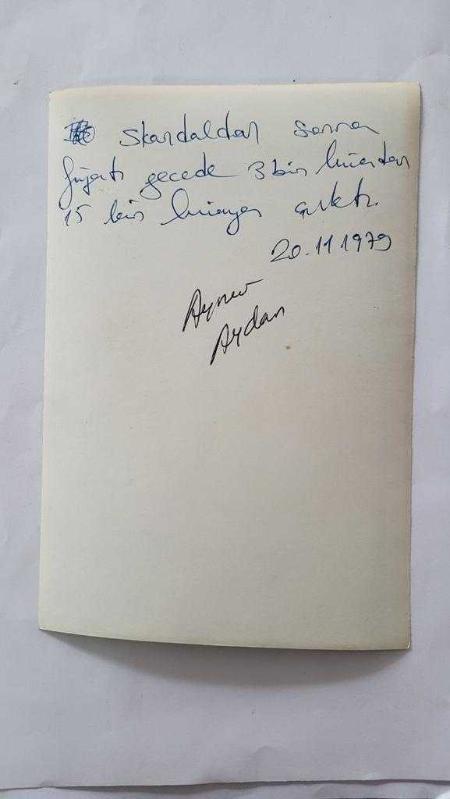 skandaldan sonra
fiyatı gecede 3 bin liradan
15 bin liraya çıktı.
20.11.1979
Aynur
Aydan